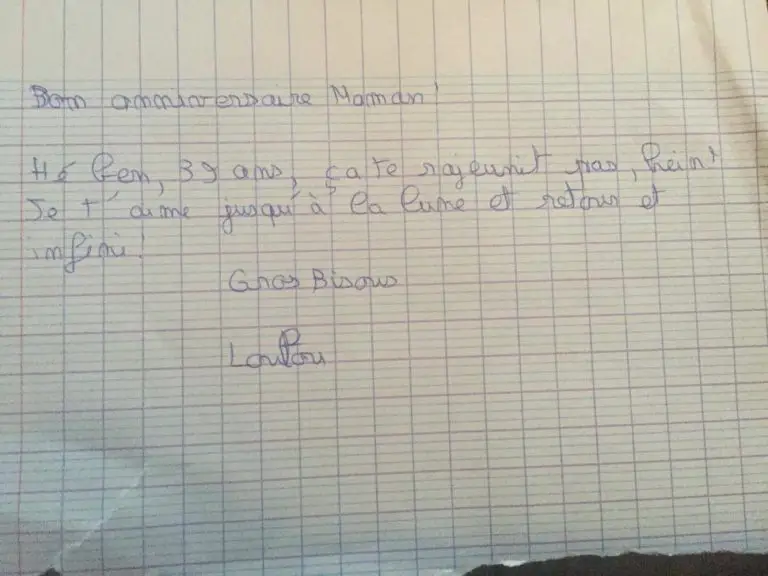 Bon anniversaire Maman!
Hé ben, 39 ans, ça te rajeunit pas, hein!
Je t'aime jusqu'à la lune et retour et
infini!
Gros Bisous
Loulou